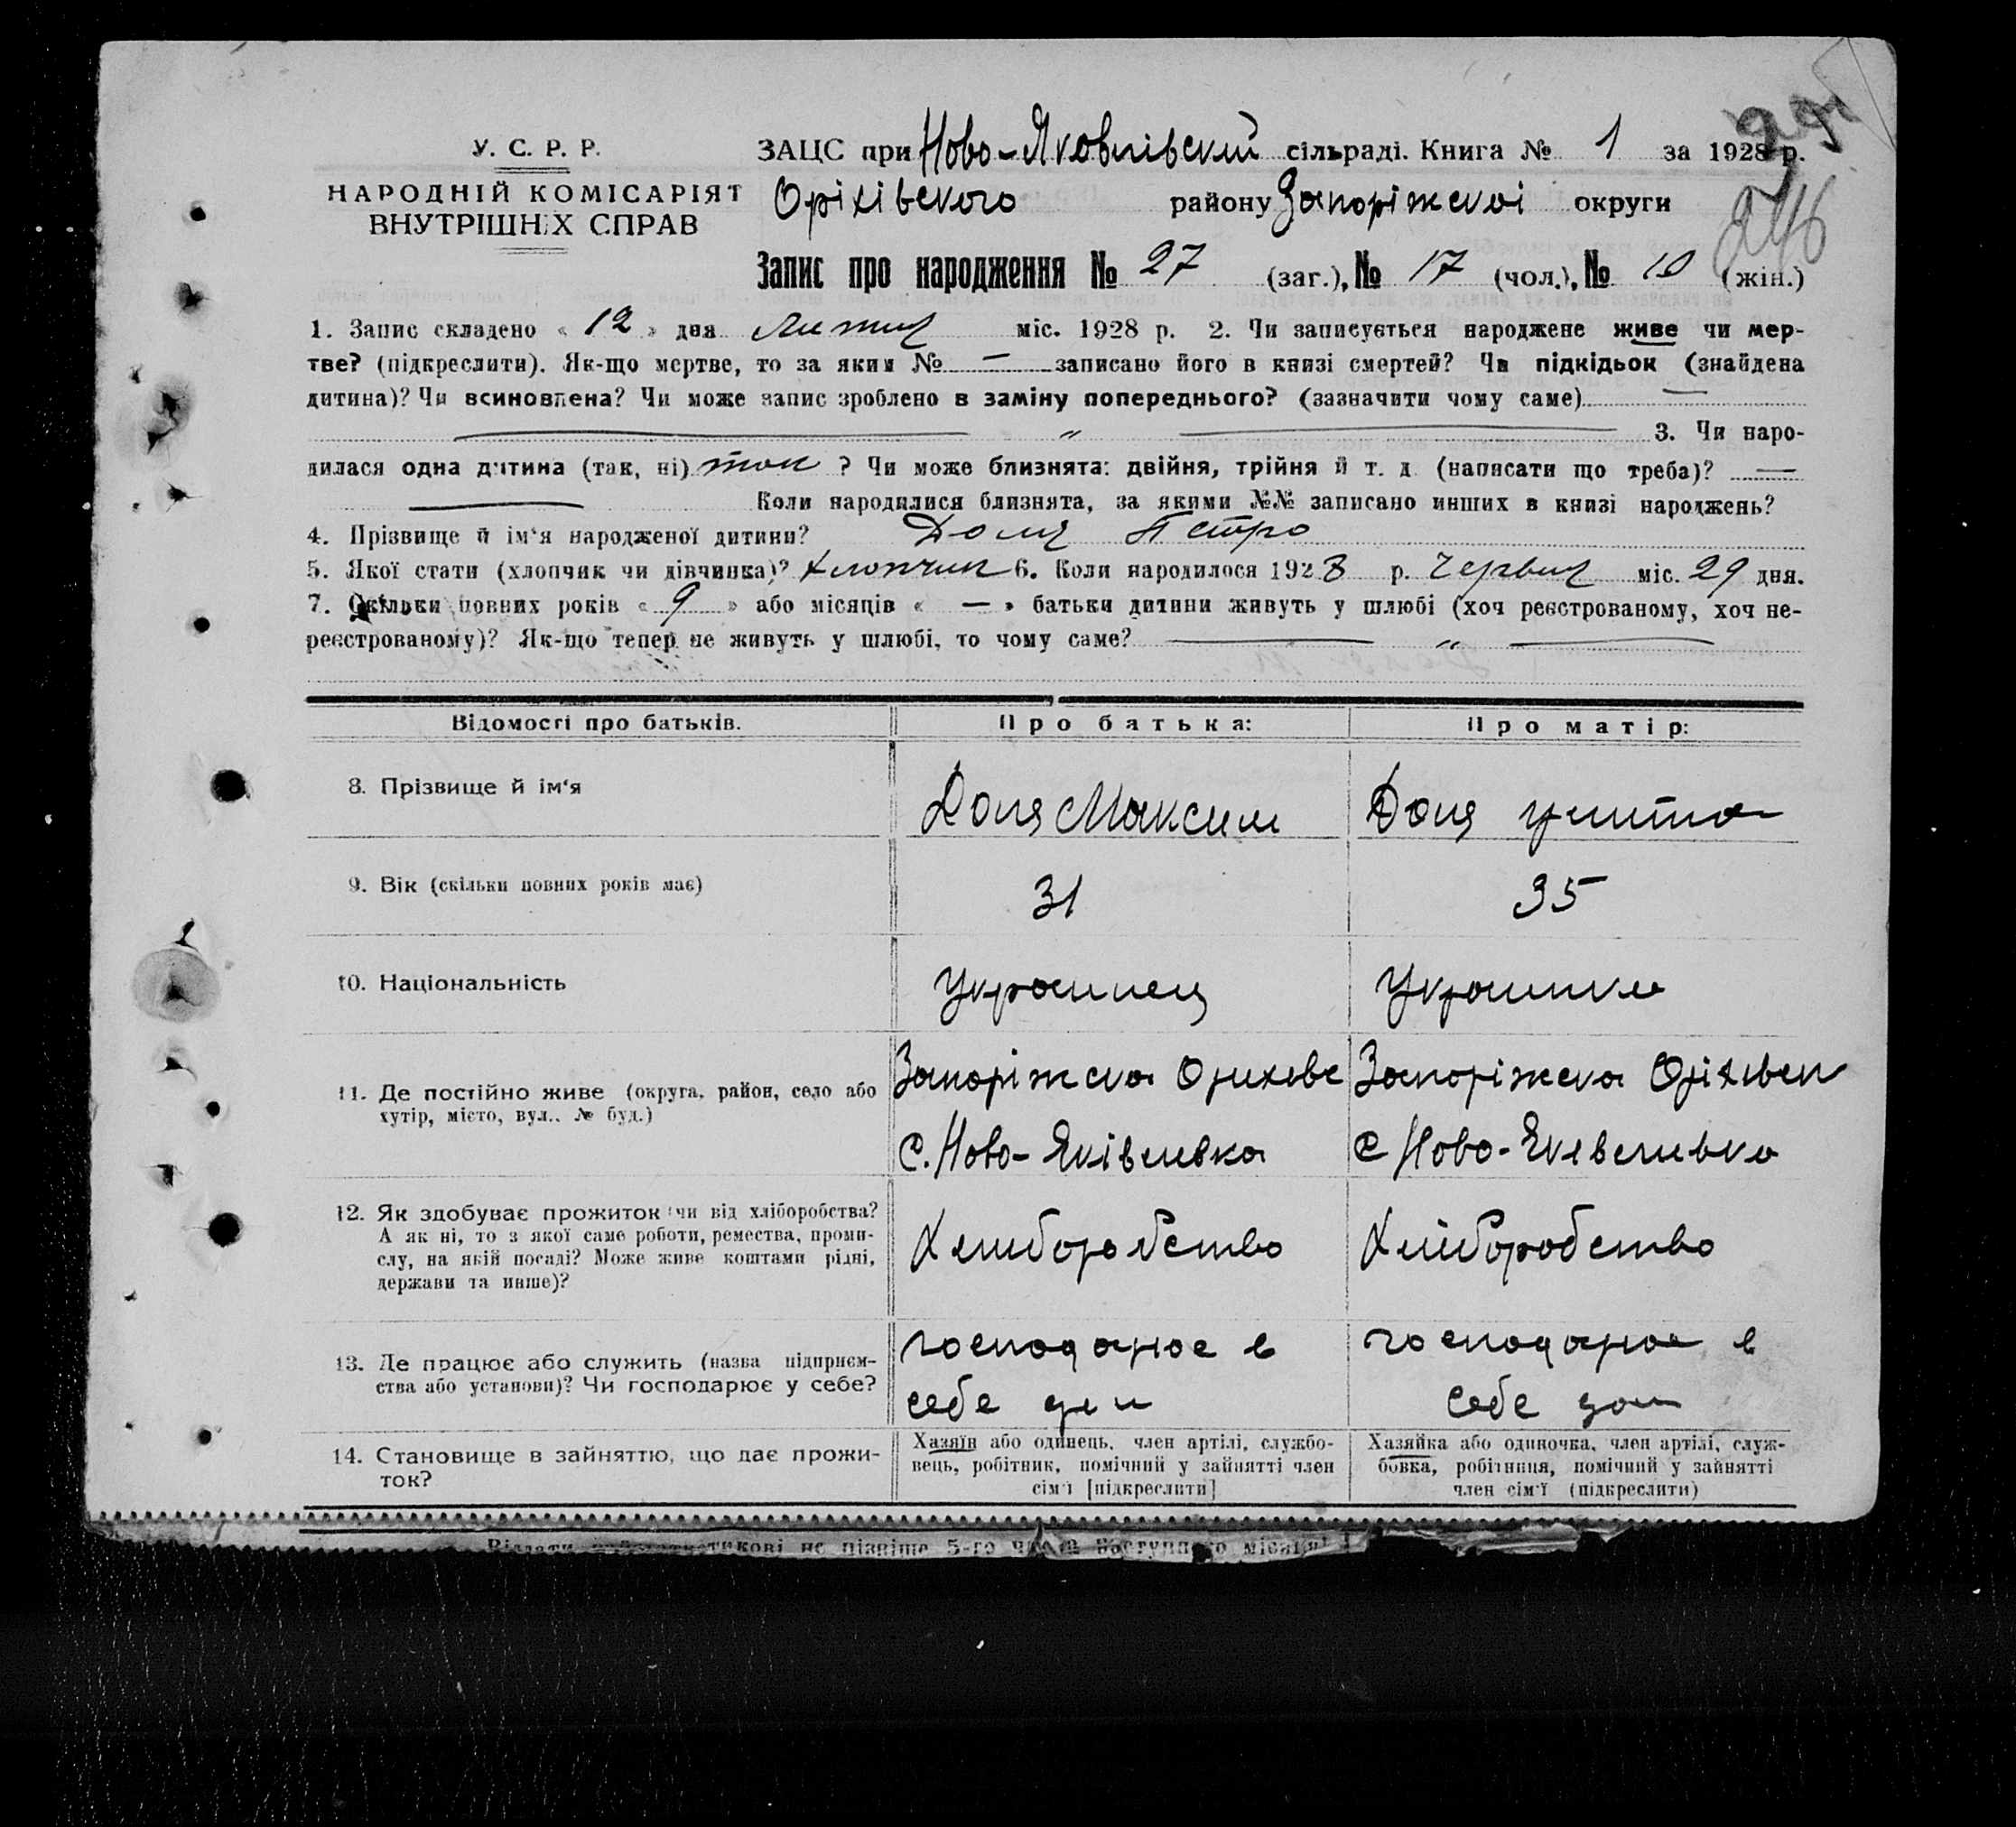 У. С. Р. Р.
НАРОДНІЙ КОМІСАРІЯТ
ВНУТРІШНІХ СПРАВ
ЗАЦС при Ново-Яковлівский сільраді. Книга № 1 за 1928 р.
Оріхівського району Запоріжскоі округи
246
Запис про народження № 27 (заг.), № 17 (чол.), № 10 (жін.)
1. Запис складено « 12 » дня Липня міс. 1928 р. 2. Чи записується народжене живе чи мер-
тве? (підкреслити). Як-що мертве, то за яким № — записано його в книзі смертей? Чи підкідьок (знайдена
дитина)? Чи всиновлена? Чи може запис зроблено в заміну попереднього? (зазначити чому саме) —
— „ — 3. Чи наро-
дилася одна дитина (так, ні) так ? Чи може близнята: двійня, трійня й т. д. (написати що треба)? —
— Коли народилися близнята, за якими №№ записано инших в книзі народжень?
4. Прізвище й ім‘я народженої дитини? Доля Петро
5. Якої стати (хлопчик чи дівчинка)? Хлопчик 6. Коли народилося 1928 р. Червня міс. 29 дня.
7. Скільки повних років « 9 » або місяців « — » батьки дитини живуть у шлюбі (хоч реєстрованому, хоч не-
реєстрованому)? Як-що тепер не живуть у шлюбі, то чому саме? — „ —
Відомості про батьків. Про батька: Про матір:
8. Прізвище й ім‘я Доля Максим Доля
9. Вік (скільки повних років має) 31 35
10. Національність Украинец Украинка
11. Де постійно живе (округа, район, село або
хутір, місто, вул.. № буд.)
Запоріжска Орихово
С. Ново-Яківлевка
Запоріжска Оріхівск
С Ново-Яківлевка
12. Як здобуває прожиток (чи від хліборобства?
А як ні, то з якої саме роботи, ремества, проми-
слу, на якій посаді? Може живе коштами рідні,
держави та инше)?
Хлиборобство
Хліборобство
13. Де працює або служить (назва підприєм-
ства або установи)? Чи господарює у себе?
господарює в
себе
господарює в
себе
14. Становище в зайняттю, що дає прожи-
ток?
Хазяїн або одинець, член артілі, службо-
вець, робітник, помічний у зайнятті член
сім‘ї [підкреслити]
Хазяйка або одиночка, член артілі, служ-
бовка, робітниця, помічний у зайнятті
член сім‘ї (підкреслити)
не пізніше 5-го наступного місяця!